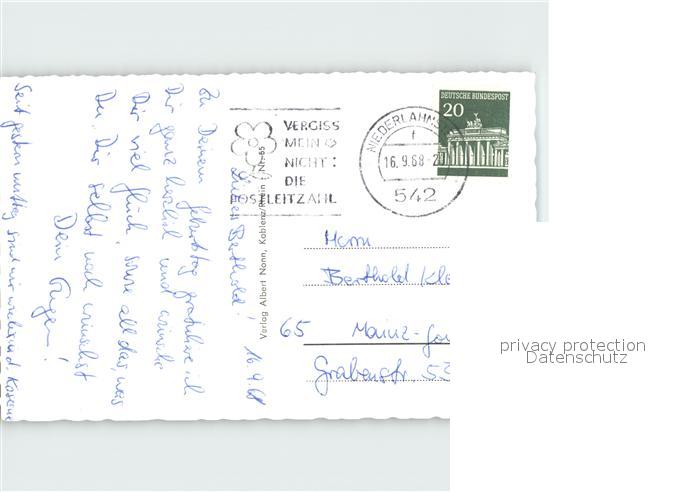 Lieber Berthold! 16.9.68
Zu Deinem Geburtstag gratuliere ich
Dir ganz herzlich und wünsche
Dir viel Glück, sowie all das, was
Du Dir selbst noch wünschst
Dein
Seit gestern mittag sind wir wieder
Verlag Albert Nonn, Koblenz/Rhein Nr. 65
VERGISS
MEIN
NICHT:
DIE
POSTLEITZAHL
NIEDERLAHNS
f
16.9.68-20
542
DEUTSCHE BUNDESPOST
20
Herrn
Berthold Kle
65 Mainz-Go
Grabenstr. 53
privacy protection
Datenschutz